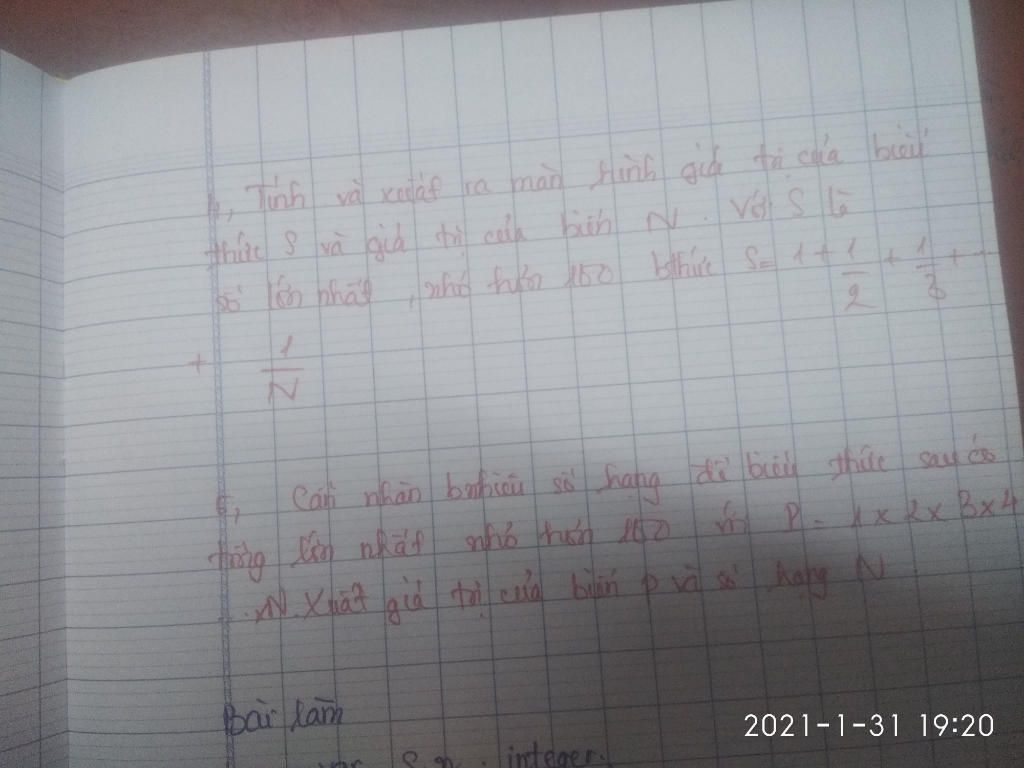 4, Tính và xuất ra màn hình giá trị của biểu
thức S và giá trị của biến N. Với S là
số lớn nhất, nhỏ hơn 150 bthức S = 1 + 1/2 + 1/3 + ...
+ 1/N
5, Cần nhân bnhiêu số hạng để biểu thức sau có
lớn nhất nhỏ hơn P = 1 x 2 x 3 x 4
...xN. Xuất giá trị của biến p và số hạng N
Bài làm
var S, n : integer;
2021-1-31 19:20